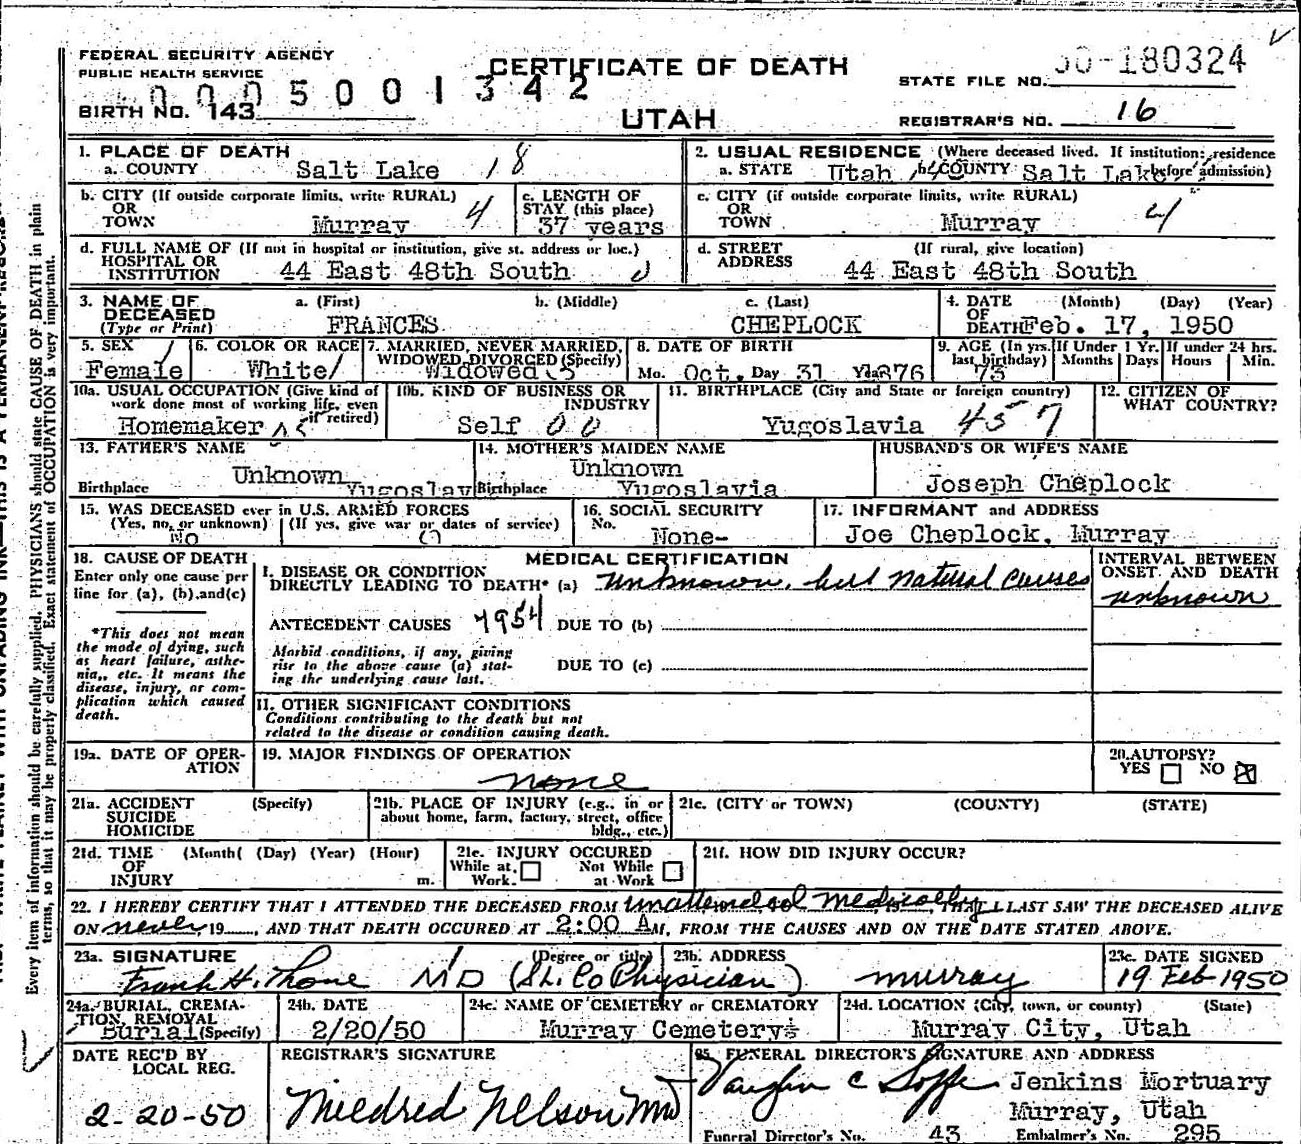 FEDERAL SECURITY AGENCY
PUBLIC HEALTH SERVICE
BIRTH NO. 143
0005001342
CERTIFICATE OF DEATH
UTAH
STATE FILE NO. 50-180324
REGISTRAR'S NO. 16
Every item of information should be carefully supplied. PHYSICIANS should state CAUSE OF DEATH in plain
terms, so that it may be properly classified. Exact statement of OCCUPATION is very important.
1. PLACE OF DEATH
a. COUNTY Salt Lake 18
2. USUAL RESIDENCE (Where deceased lived. If institution: residence
before admission)
a. STATE Utah b. COUNTY Salt Lake
b. CITY (If outside corporate limits, write RURAL)
OR
TOWN Murray 4
c. LENGTH OF
STAY (this place)
37 years
c. CITY (if outside corporate limits, write RURAL)
OR
TOWN Murray 4
d. FULL NAME OF (If not in hospital or institution, give st. address or loc.)
HOSPITAL OR
INSTITUTION 44 East 48th South
d. STREET (If rural, give location)
ADDRESS 44 East 48th South
3. NAME OF DECEASED
(Type or Print)
a. (First) FRANCES
b. (Middle)
c. (Last) CHEPLOCK
4. DATE (Month) (Day) (Year)
OF
DEATH Feb. 17, 1950
5. SEX
Female
6. COLOR OR RACE
White
7. MARRIED, NEVER MARRIED,
WIDOWED, DIVORCED (Specify)
Widowed
8. DATE OF BIRTH
Mo. Oct. Day 31 Yr. 1876
9. AGE (In yrs. last birthday) 73
If Under 1 Yr. Months Days
If under 24 hrs. Hours Min.
10a. USUAL OCCUPATION (Give kind of
work done most of working life, even
if retired)
Homemaker
10b. KIND OF BUSINESS OR
INDUSTRY
Self 00
11. BIRTHPLACE (City and State or foreign country)
Yugoslavia 457
12. CITIZEN OF
WHAT COUNTRY?
13. FATHER'S NAME
Unknown
Birthplace Yugoslav
14. MOTHER'S MAIDEN NAME
Unknown
Birthplace Yugoslavia
HUSBAND'S OR WIFE'S NAME
Joseph Cheplock
15. WAS DECEASED ever in U.S. ARMED FORCES
(Yes, no, or unknown) (If yes, give war or dates of service)
No
16. SOCIAL SECURITY
No.
None-
17. INFORMANT and ADDRESS
Joe Cheplock, Murray
18. CAUSE OF DEATH
Enter only one cause per
line for (a), (b), and (c)
*This does not mean
the mode of dying, such
as heart failure, asthe-
nia,, etc. It means the
disease, injury, or com-
plication which caused
death.
MEDICAL CERTIFICATION
I. DISEASE OR CONDITION
DIRECTLY LEADING TO DEATH* (a) unknown, but natural causes
ANTECEDENT CAUSES 7954 DUE TO (b)
Morbid conditions, if any, giving
rise to the above cause (a) stat-
ing the underlying cause last.
DUE TO (c)
II. OTHER SIGNIFICANT CONDITIONS
Conditions contributing to the death but not
related to the disease or condition causing death.
INTERVAL BETWEEN
ONSET AND DEATH
unknown
19a. DATE OF OPER-
ATION
19. MAJOR FINDINGS OF OPERATION
none
20. AUTOPSY?
YES NO
21a. ACCIDENT (Specify)
SUICIDE
HOMICIDE
21b. PLACE OF INJURY (e.g., in or
about home, farm, factory, street, office
bldg., etc.)
21c. (CITY or TOWN) (COUNTY) (STATE)
21d. TIME (Month( (Day) (Year) (Hour)
OF
INJURY m.
21e. INJURY OCCURED
While at Work. Not While at Work
21f. HOW DID INJURY OCCUR?
22. I HEREBY CERTIFY THAT I ATTENDED THE DECEASED FROM unattended medically, THAT I LAST SAW THE DECEASED ALIVE
ON never 19___, AND THAT DEATH OCCURED AT 2:00 AM, FROM THE CAUSES AND ON THE DATE STATED ABOVE.
23a. SIGNATURE (Degree or title)
Frank H. Thone MD (S.L. Co Physician)
23b. ADDRESS
Murray
23c. DATE SIGNED
19 Feb 1950
24a. BURIAL, CREMA-
TION, REMOVAL
Burial (Specify)
24b. DATE
2/20/50
24c. NAME OF CEMETERY or CREMATORY
Murray Cemetery
24d. LOCATION (City, town, or county) (State)
Murray City, Utah
DATE REC'D BY
LOCAL REG.
2-20-50
REGISTRAR'S SIGNATURE
Mildred Nelson MD
25. FUNERAL DIRECTOR'S SIGNATURE AND ADDRESS
Vaughn C Soffe Jenkins Mortuary
Murray, Utah
Funeral Director's No. 43 Embalmer's No. 295